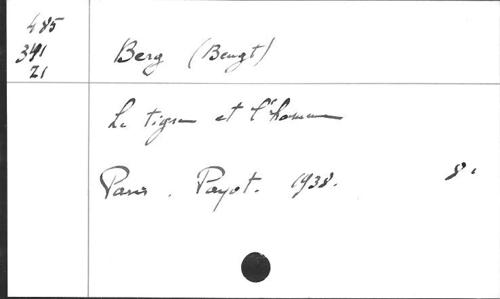 485
391
21
Berg (Bengt)
Le tigre et l'homme
Paris. Payot. 1938. 8°